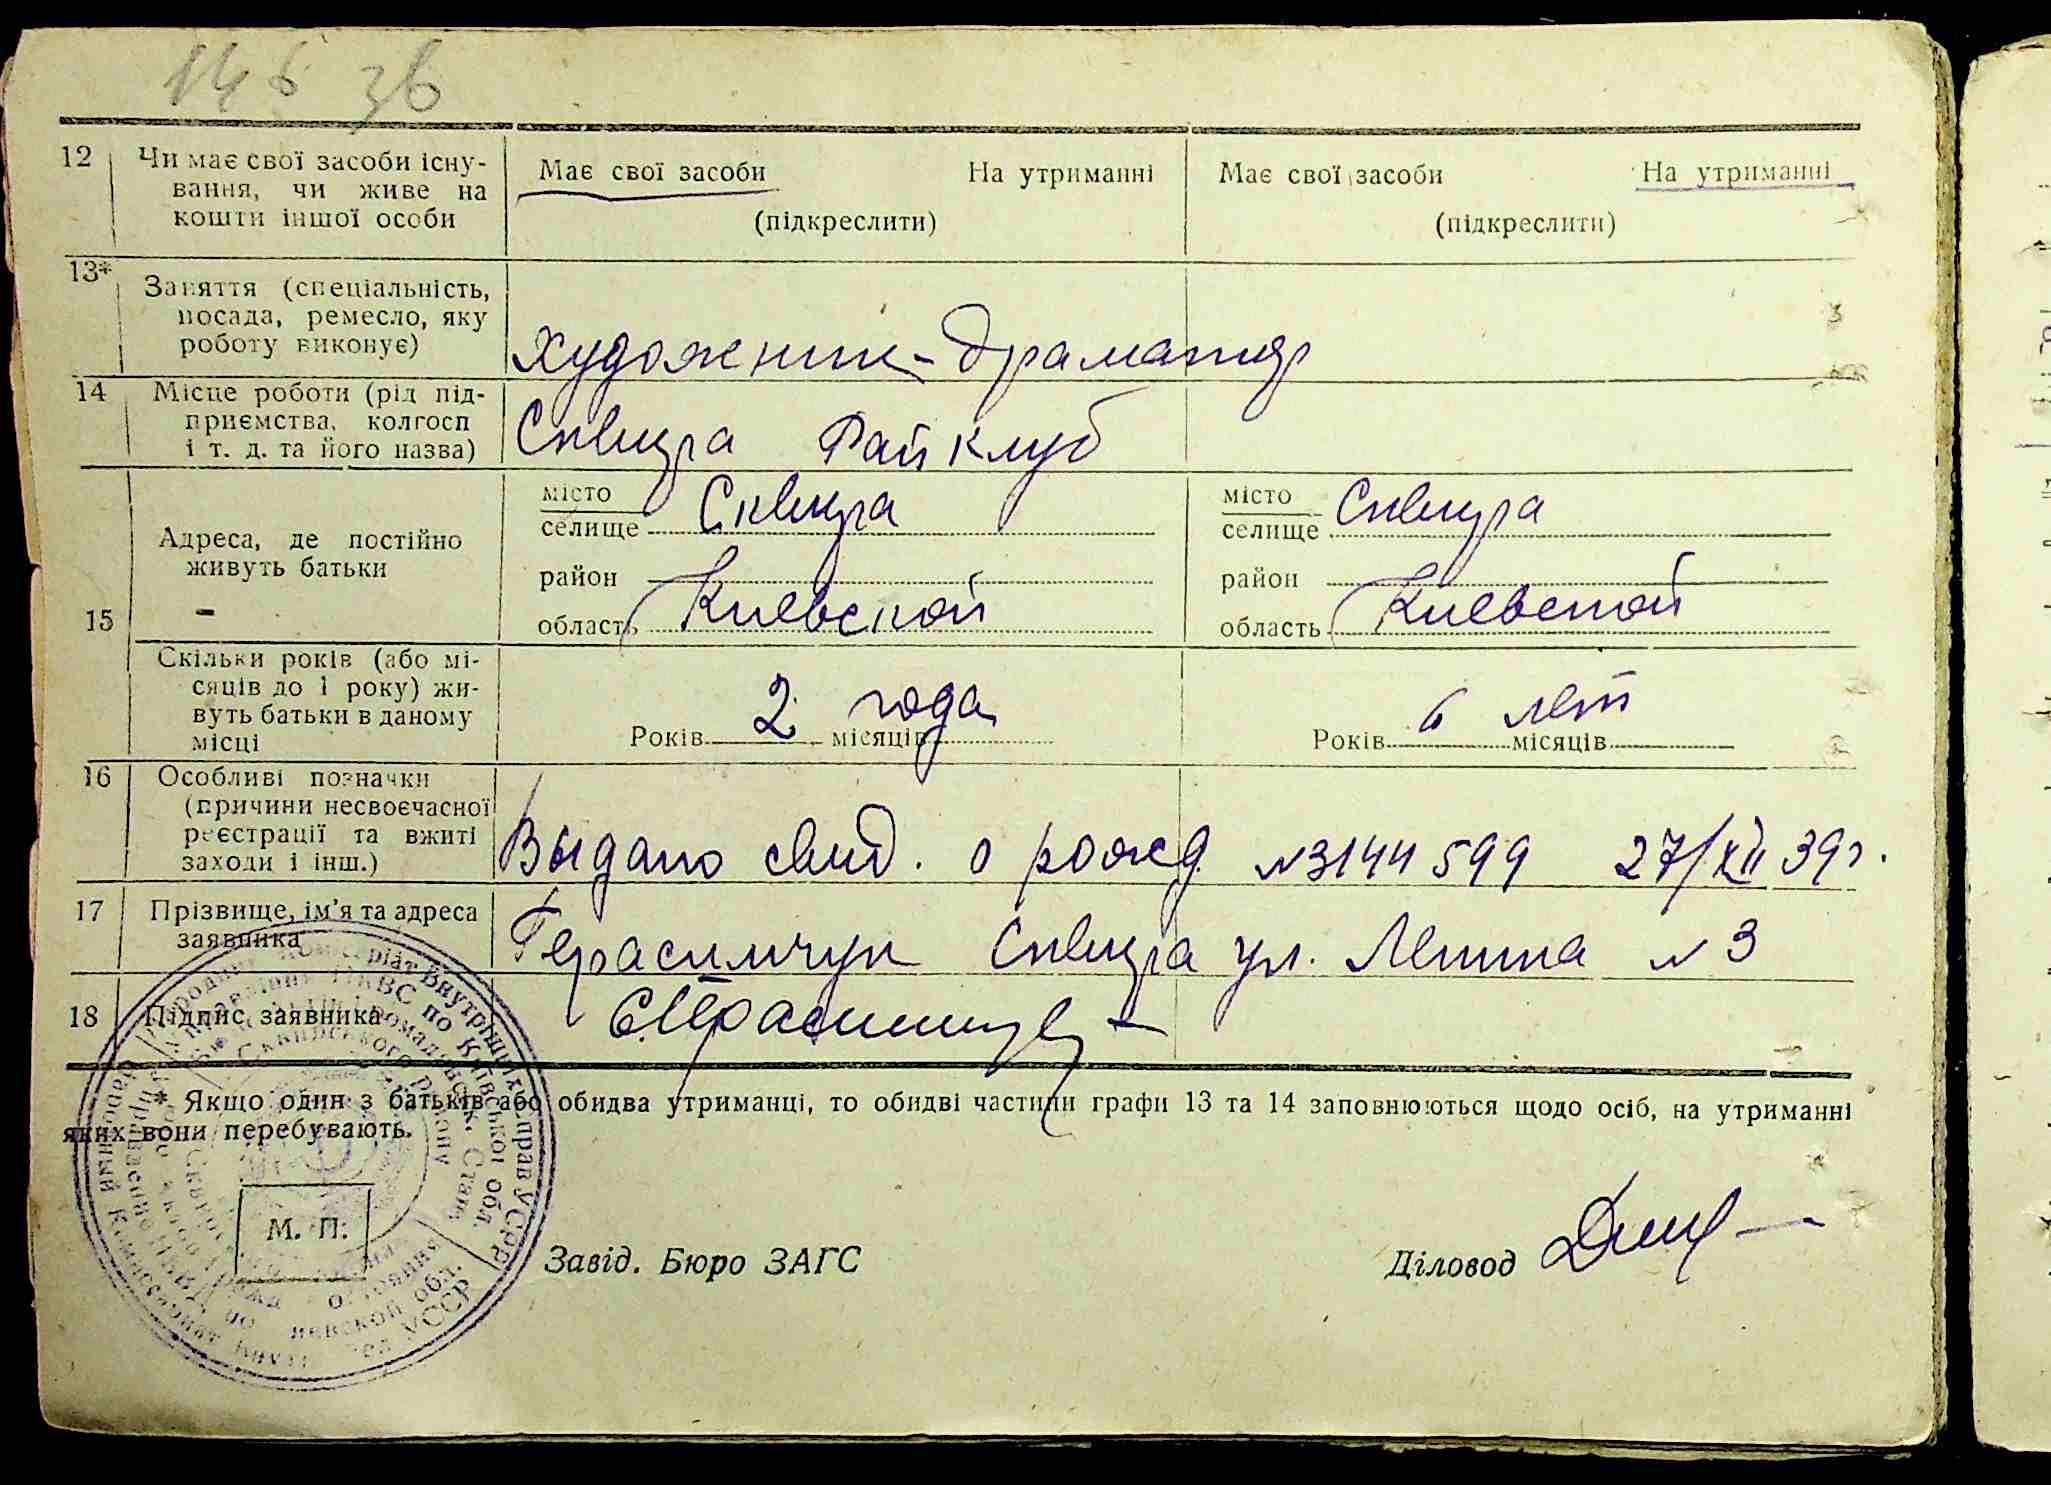 146 зв
12 Чи має свої засоби існу-
вання, чи живе на
кошти іншої особи
Має свої засоби На утриманні
(підкреслити)
Має свої засоби На утриманні
(підкреслити)
13* Заняття (спеціальність,
посада, ремесло, яку
роботу виконує)
художник-драматур
14 Місце роботи (рід під-
приємства, колгосп
і т. д. та його назва)
Сквира Райклуб
15 Адреса, де постійно
живуть батьки
місто
селище Сквира
район
область Киевской
місто
селище Сквира
район
область Киевской
Скільки років (або мі-
сяців до 1 року) жи-
вуть батьки в даному
місці
Років 2 года місяців
Років 6 лет місяців
16 Особливі позначки
(причини несвоєчасної
реєстрації та вжиті
заходи і інш.)
Выдано свид. о рожд. №3144599 27/XII 39г.
17 Прізвище, ім'я та адреса
заявника
Герасимчук Сквира ул. Ленина №3
18 Підпис заявника
* Якщо один з батьків або обидва утриманці, то обидві частини графи 13 та 14 заповнюються щодо осіб, на утриманні
яких вони перебувають.
М. П.
Завід. Бюро ЗАГС
Діловод